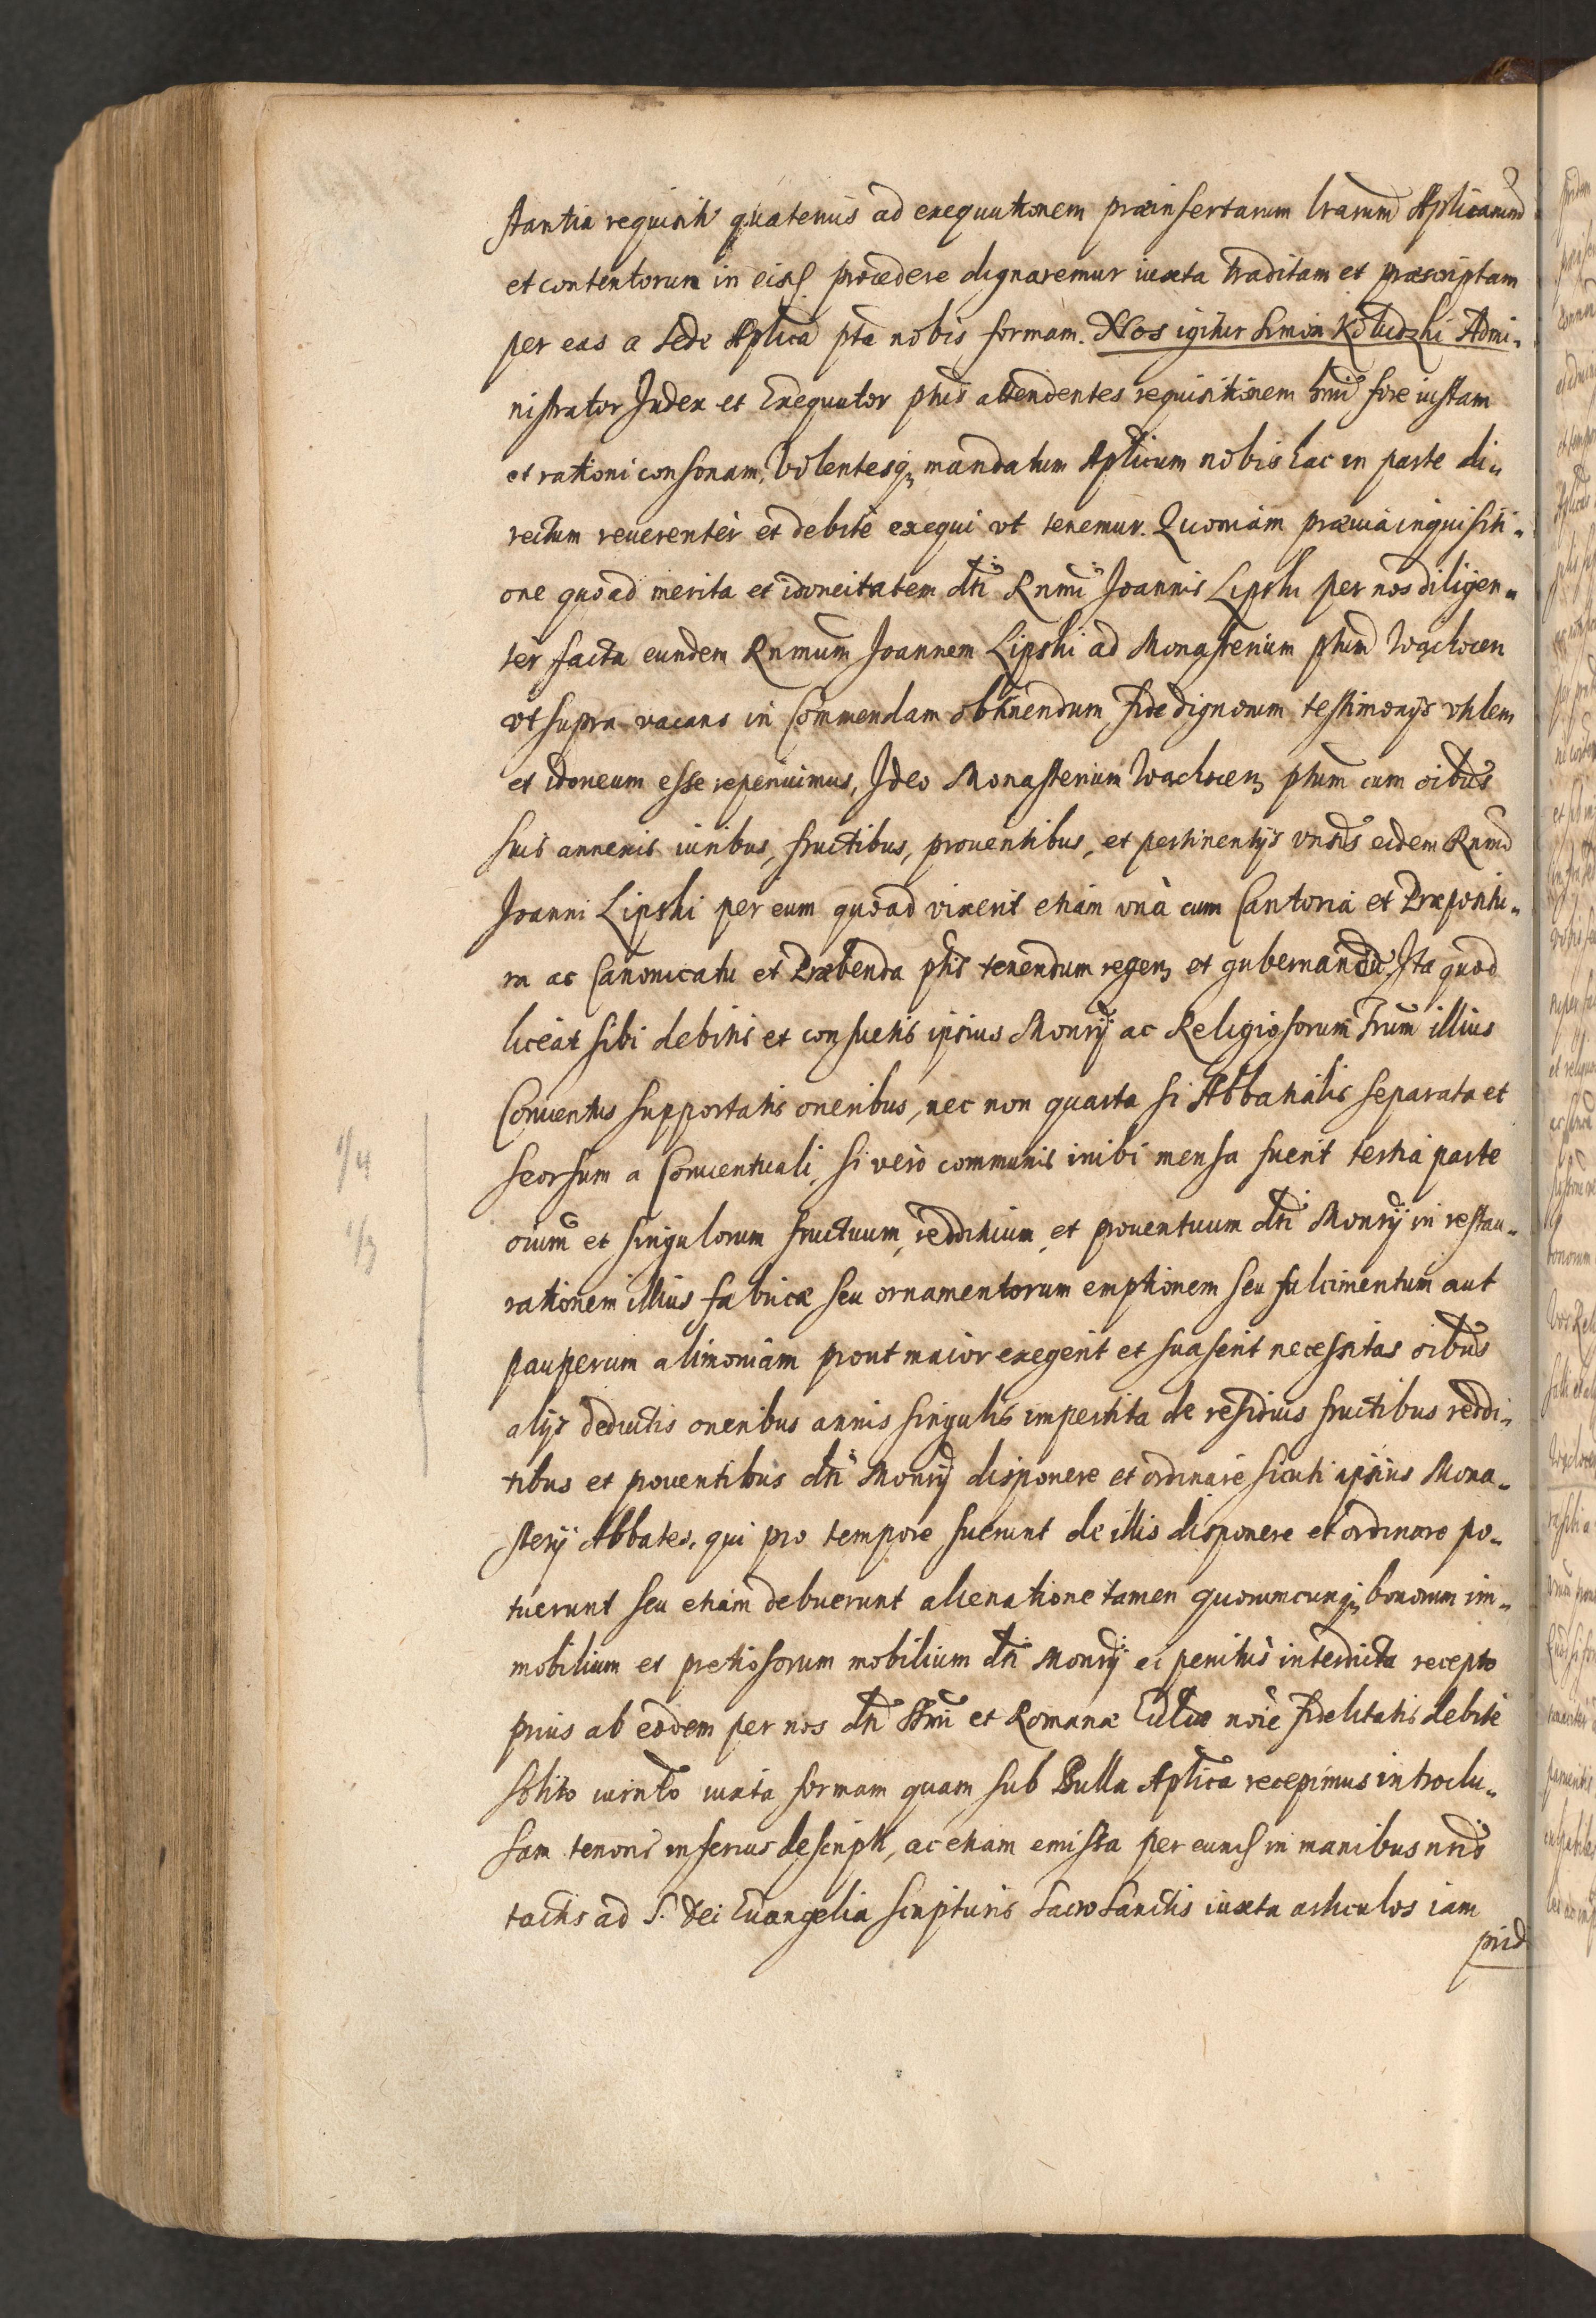 stantia requisiti quatenus ad exequutionem præinsertarum lrarum Aplicarum
et contentorum in eisd procedere dignaremur iuxta traditam et præscriptam
per eas a Sede Aplica pta nobis formam. Nos igitur Simon Koludzki Admi-
nistrator Judex et Exequutor ptus attendentes requisitionem hmoi fore iustam
et rationi consonam, Volentesq mandatum Aplicum nobis hac in parte di-
rectum reuerentèr et debitè exequi vt tenemur. Quoniam præuia inquisiti-
one quoad merita et idoneitatem dti Rnmi Joannis Lipski per nos diligen-
tèr facta eundem Rnmum Joannem Lipski ad Monasterium ptum Wąchocen
vt supra vacans in Commendam obtinendum fide dignorum testimonijs vtilem
et idoneum esse reperiuimus, Ideo Monasterium Wachocen ptum cum oibus
suis annexis iuribus, fructibus, prouentibus, et pertinentijs vnitis eidem Rnmo
Joanni Lipski per eum quoad vixerit etiam vnà cum Cantoria et Præpositu-
ra ac Canonicatu et Præbenda ptis tenendum regen et gubernandu, Ita quod
liceat sibi debitis et consuetis ipsius Monrij ac Religiosorum Frum illius
Conuentus supportatis oneribus, nec non quarta si Abbatialis separata et
seorsum a Conuentuali, si verò communis inibi mensa fuerit tertia parte
oium et singulorum fructuum, reddituum, et prouentuum dti Monrij in restau-
rationem illius fabricæ seu ornamentorum emptionem seu fulcimentum aut
pauperum alimoniam prout maior exegerit et suaserit necessitas oibus
alijs deductis oneribus annis singulis impertita de residuis fructibus reddi-
tibus et prouentibus dti Monrij disponere et ordinare sicuti ipsius Mona-
sterij Abbates, qui pro tempore fuerunt de illis disponere et ordinare po-
tuerunt seu etiam debuerunt alienatione tamen quorumcunq bonorum im-
mobilium et pretiosorum mobilium dti Monrij ei penitùs interdicta recepto
prius ab eodem per nos dti Smi et Romanæ Ecliæ noie fidelitatis debitè
solito iurnto iuxta formam quam sub Bulla Aplica recepimus introclu-
sam tenoris inferius descripti, ac etiam emissa per eund in manibus nris
tactis ad S. Dei Euangelia scripturis Sacrosanctis iuxta articulos iam
prid
1/4
1/3